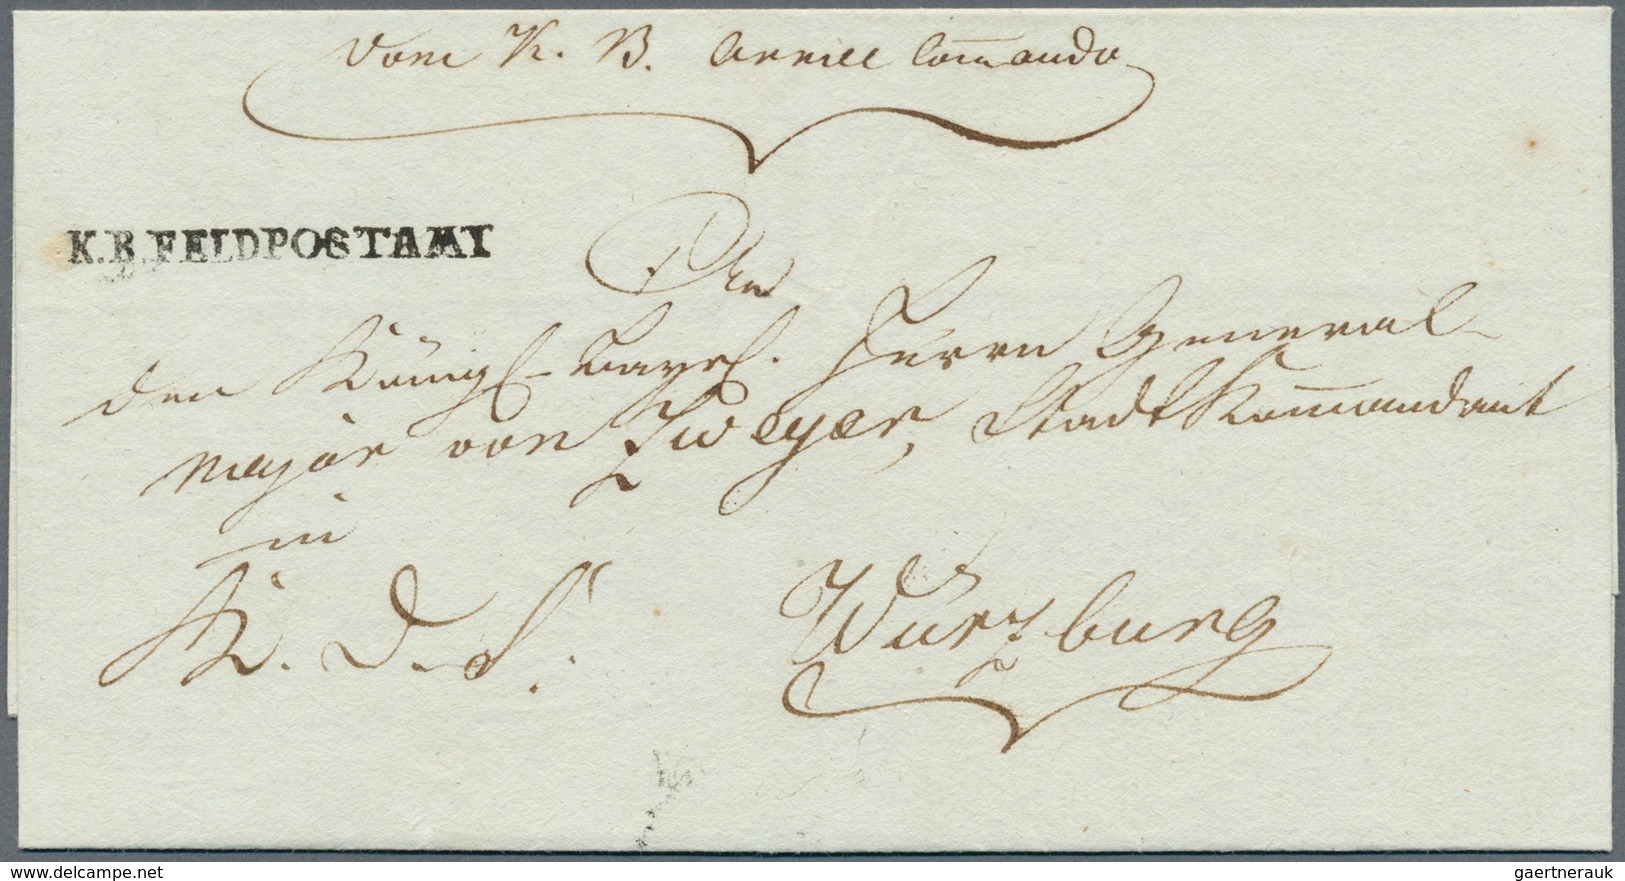 Vom K. B. Armee Com̅ando
K.B.FELDPOSTAMT
An
den Königl. Bayer. Herrn General-
major von Zweyer, Stadt Kom̅andant
in
K. D. S.
Würzburg
delcampe.net
gaertnerauk